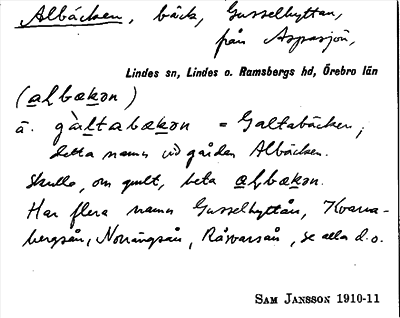 Albäcken, bäck, Gusselhyttan,
från Aspasjön,
Lindes sn, Lindes o. Ramsbergs hd, Örebro län
(aLbækən)
ä. gàLtabækən = Galtabäcken,
detta namn vid gården Albäcken.
Skulle, om gmlt, heta aLbækən.
Har flera namn Gusselhyttån, Kvarna-
bergsån, Norrängsån, Råsvarsån, se alla d.o.
SAM JANSSON 1910-11